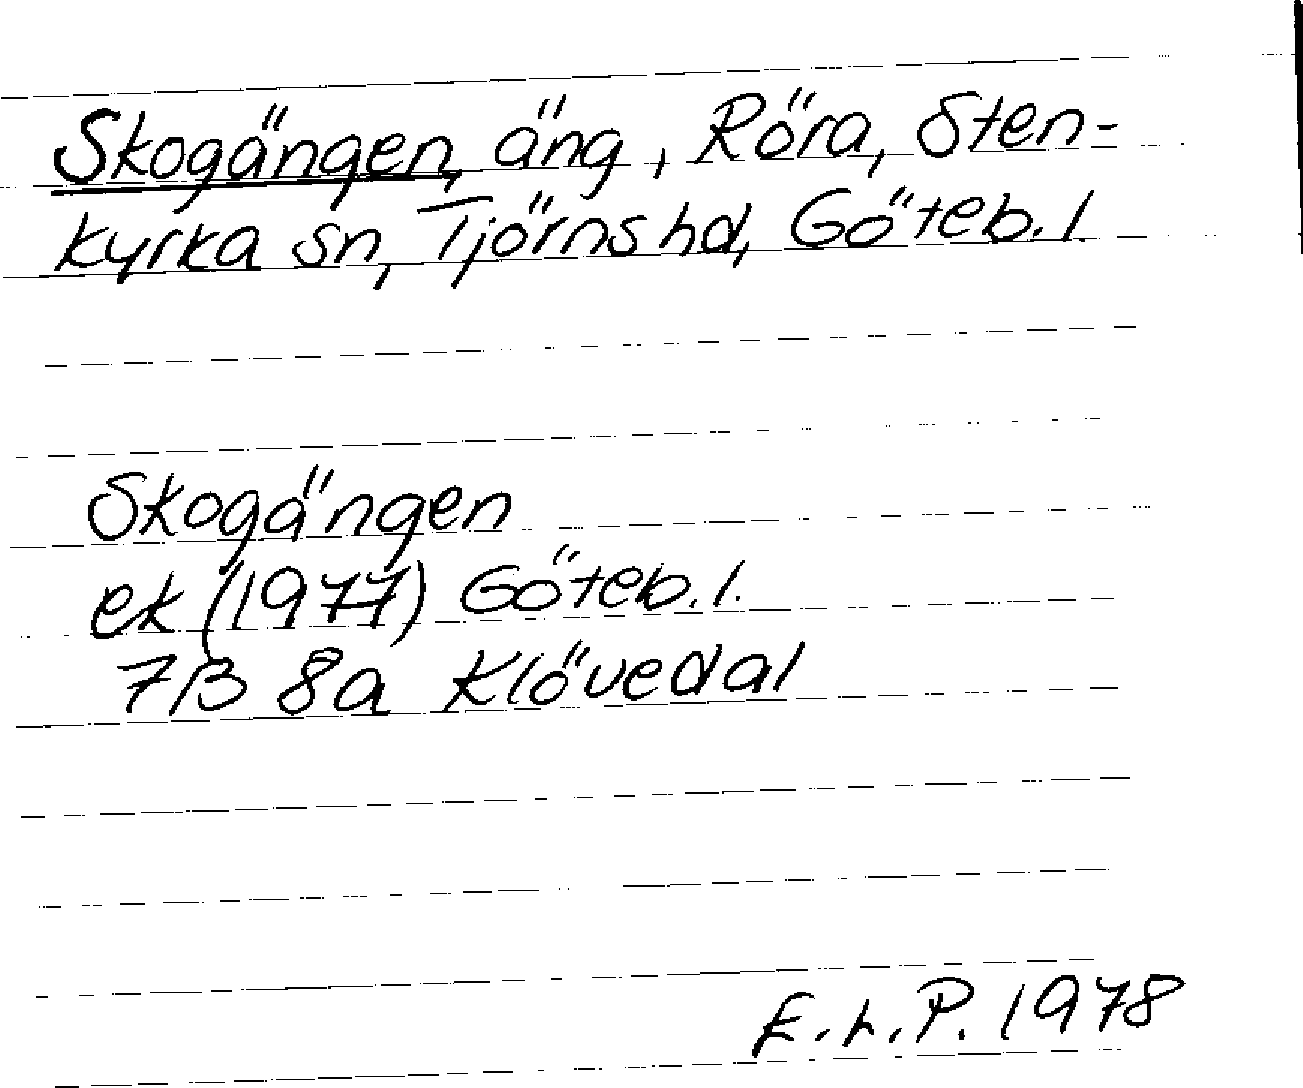 Skogängen, äng, Röra, Sten=
kyrka sn, Tjörns hd, Göteb. l.
Skogängen
ek (1977) Göteb. l.
7B 8a Klövedal
E.L.P. 1978